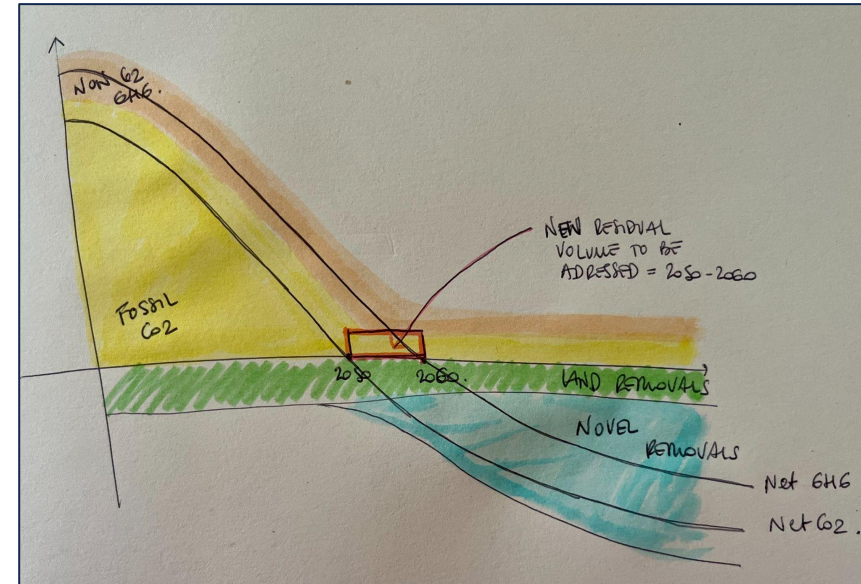 NON CO2
GHG.
FOSSIL
CO2
NEW RESIDUAL
VOLUME TO BE
ADRESSED = 2050-2060
2050
2060.
LAND REMOVALS
NOVEL
REMOVALS
Net GHG
Net CO2.